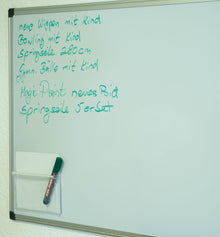 neue Wippen mit Kind
Bowling mit Kind
Springseile 280cm
Gymn. Bälle mit Kind
Magic Point neues Bild
Springseile 5er Set